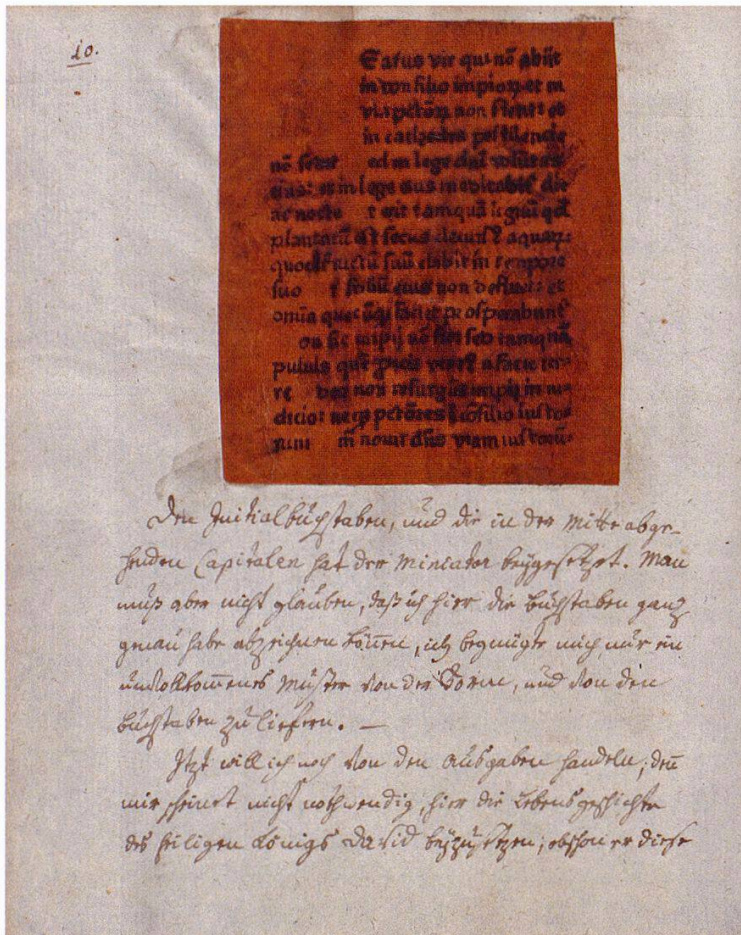 10.
Eatus vir qui nō abiit
in consilio impioꝝ et in
via pctōꝝ non stetit et
in cathedra pestilencie
nō sedit ed in lege dn̄i volūtas
eius: et in lege eius meditabit̉ die
ac nocte t erit tamquā lignū qđ
plantatū est secus decursꝰ aquaꝝ:
quod fructū suū dabit in tempore
suo t foliū eius non defluet: et
omīa quecūqꝫ faciet prosperabunt̉
on sic impij nō sic: sed tamquā
puluis quē proicit ventꝰ a facie ter-
re deo non resurgūt impij in iu-
dicio: neqꝫ pctōres ī cōsilio iusto-
rum m̄ novit dn̄s viam iustorū:
Den Initialbuchstaben, und die in der Mitte abge-
henden Capitalen hat der Miniator beygesetzet. Man
muß aber nicht glauben, daß ich hier die Buchstaben ganz
genau habe abzeichnen können, ich begnügte mich nur ein
unvollkommenes Muster von der Form, und von den
Buchstaben zu liefern. —
Itzt will ich noch von den Ausgaben handeln; deñ
mir scheinet nicht nothwendig, hier die Lebensgeschichte
des heiligen Königs David beyzusetzen; obschon er diese